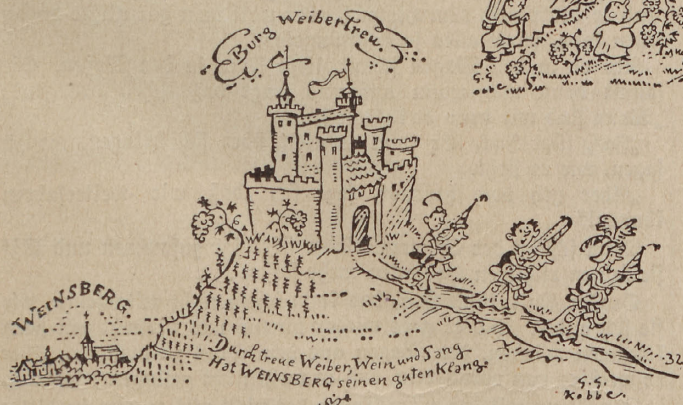 Burg Weibertreu.
G.G.
Kobbe.
WEINSBERG.
Durch treue Weiber, Wein und Sang
Hat WEINSBERG seinen guten Klang.
32
G.G.
Kobbe.